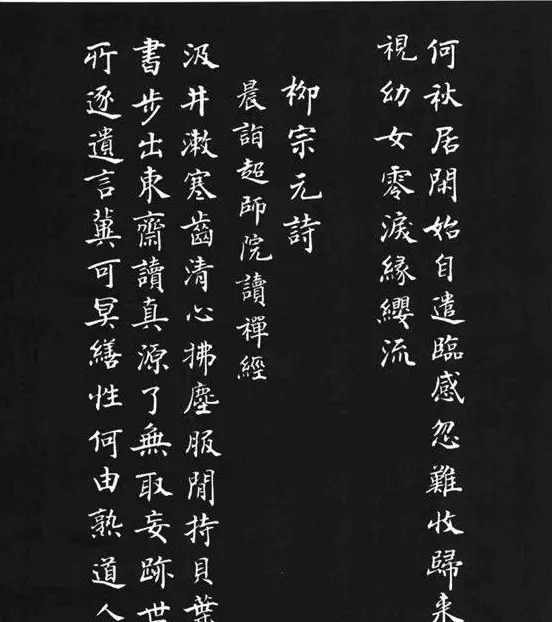 何秋居閑始自遣臨感忽難收歸來
視幼女零淚緣纓流
柳宗元詩
晨詣超師院讀禪經
汲井漱寒齒清心拂塵服閒持貝葉
書步出東齋讀真源了無取妄跡世
所逐遺言冀可冥繕性何由熟道人